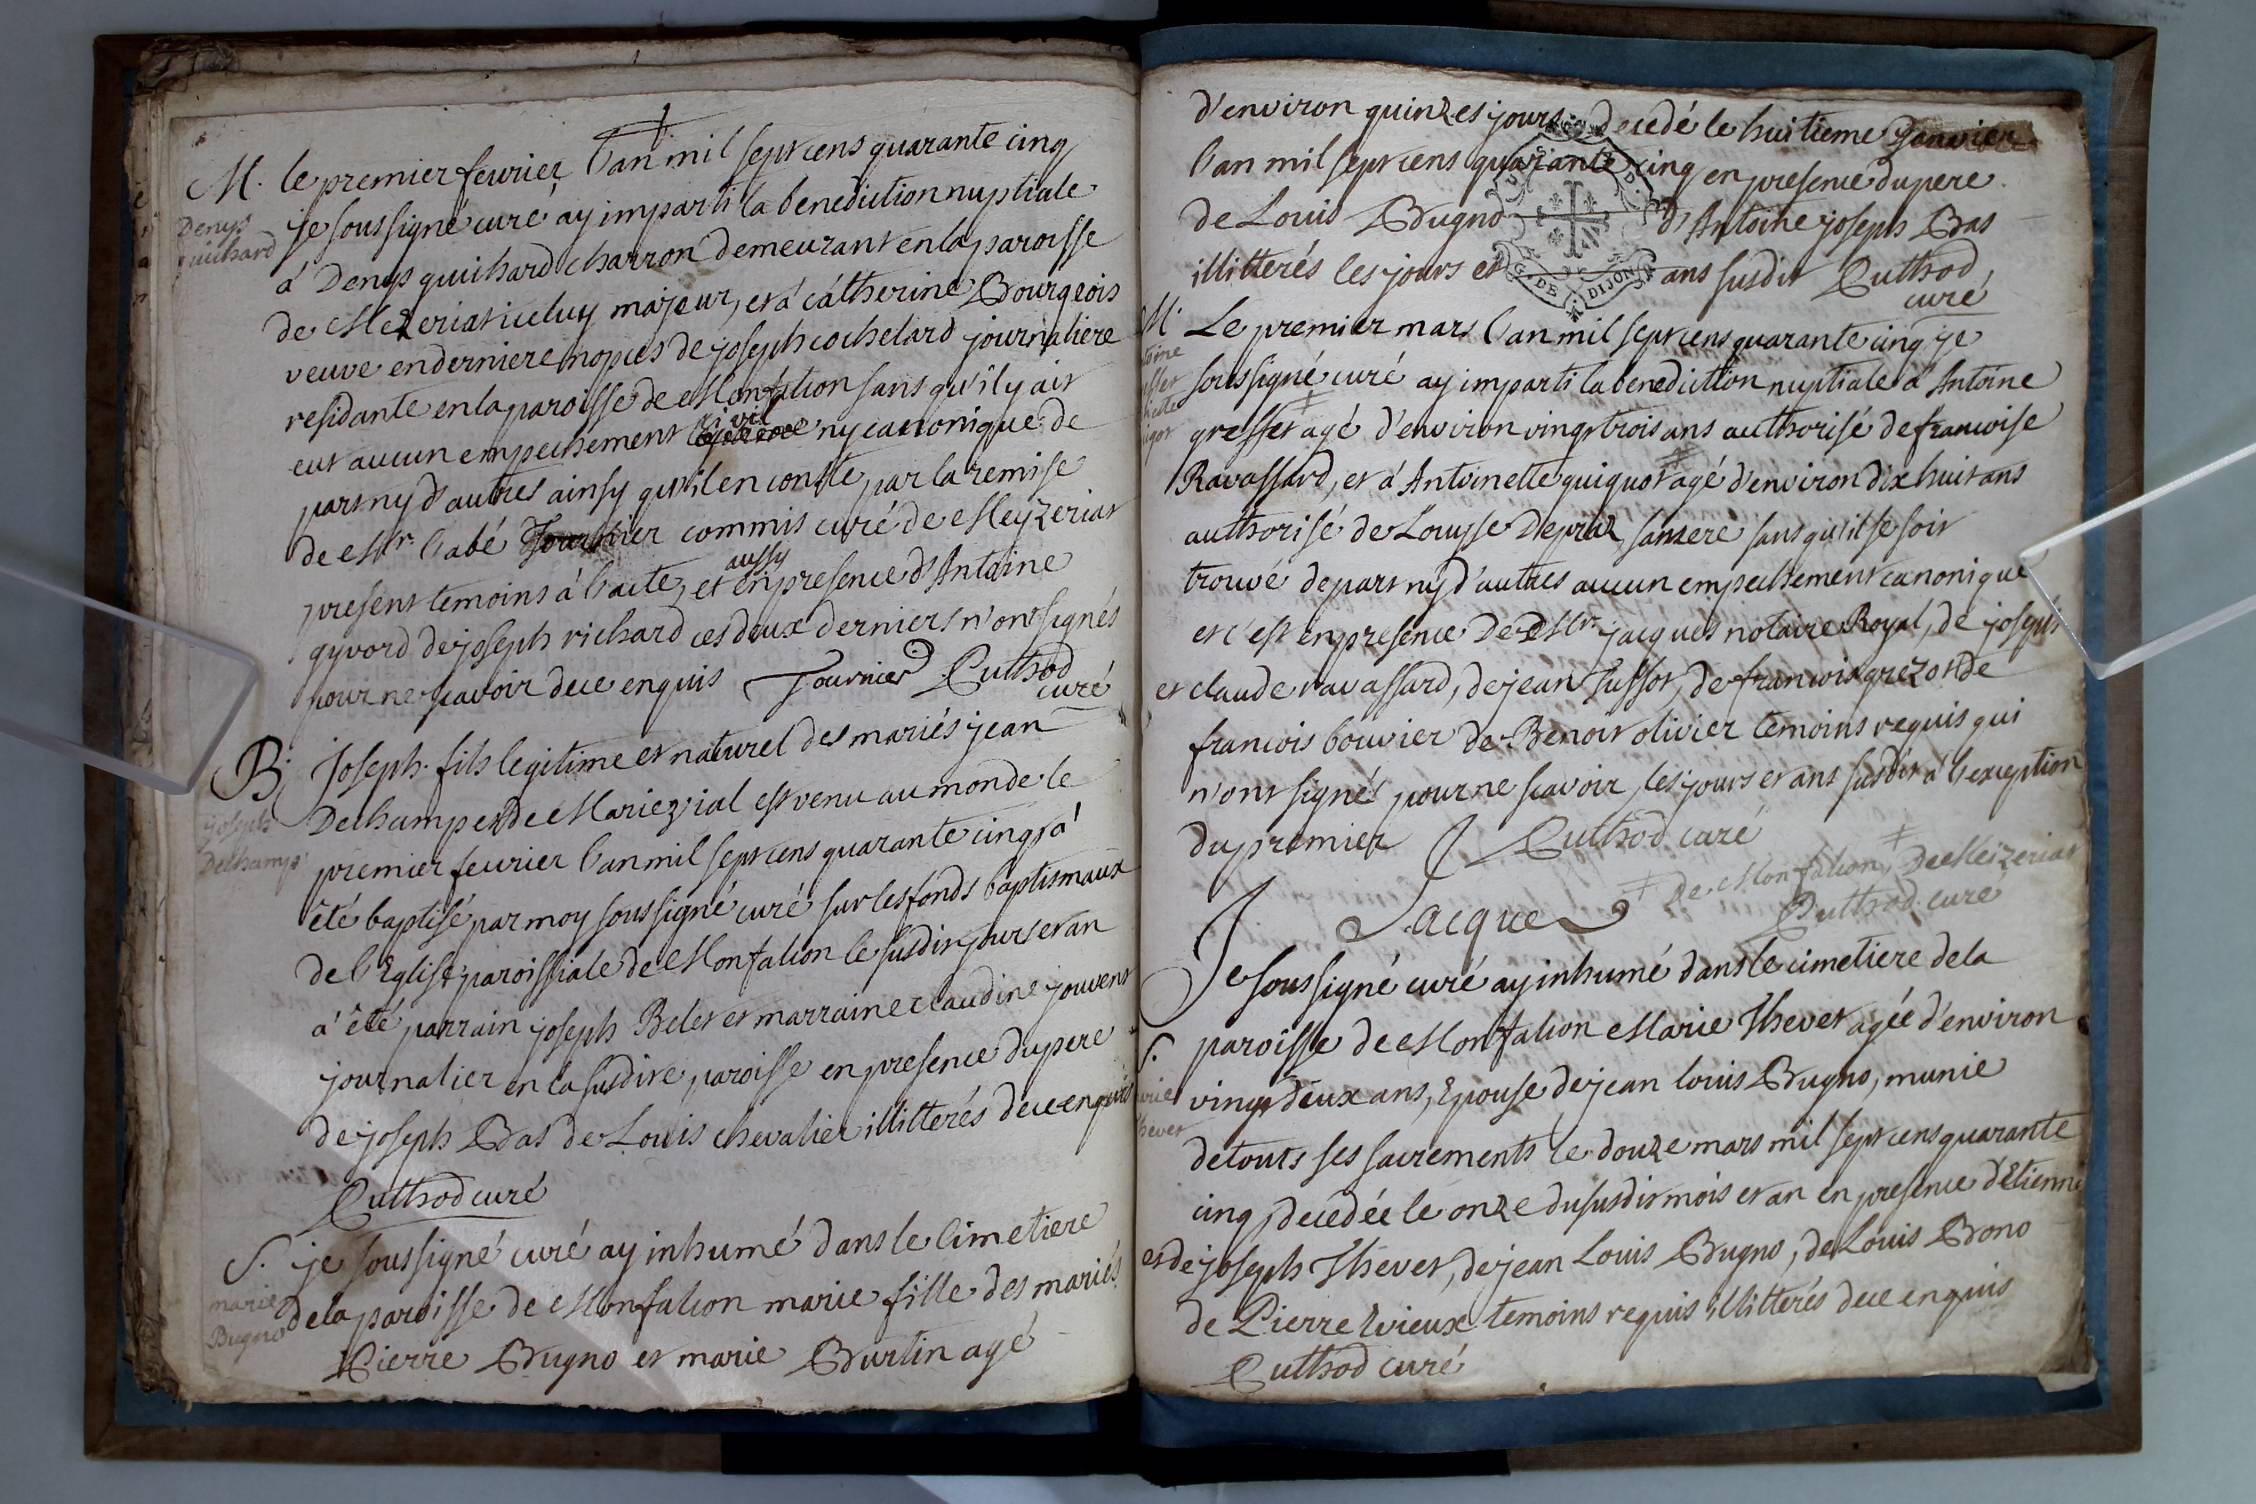 M. le premier fevrier l'an mil sept cens quarante cinq
Denys
guichard
je soussigné curé ay imparti la benediction nuptiale
á Denys guichard charron demeurant en la paroisse
de Mezeriat iceluy majeur, et á cátherine Bourgeois
veuve en derniere nopces de joseph cochelard journaliere
residante en la paroisse de Monfalcon sans qu'il y ait
eut aucun empechement civil ny canonique de
part ny d'autres ainsy qu'il en conste par la remise
de Mr. l'abé Tournier commis curé de Meyzeriat
present temoins á l'acte, et aussy en presence d'Antoine
gyvord de joseph richard ces deux derniers n'ont signés
pour ne scavoir de ce enquis Tournier Cuthod
curé
B. joseph fils legitime et naturel des mariés jean
joseph
Dechamps
Dechamp et de Marie vial est venu au monde le
premier fevrier l'an mil sept cens quarante cinq, á
été baptisé par moy soussigné curé sur les fonds baptismaux
de l'Eglise paroissiale de Monfalcon le susdit jours et an
a été parrain joseph Belet et marraine claudine jouvent
journalier en la susdite paroisse en presence du pere
de joseph Bas de Louis chevalier illitterés de ce enquis
Cuthod curé
S. je soussigné curé ay inhumé dans le cimetiere
marie
Bugno
de la paroisse de Monfalcon marie fille des mariés
Pierre Bugno et marie Burtin agé
d'environ quinzes jours decedé le huitieme Janvier
l'an mil sept cens quarante cinq en presence du pere
de Louis Bugno d'Antoine joseph Bas
illitterés les jours et ans susdit Cuthod,
curé
G. DE DIJON
M. Le premier mars l'an mil sept cens quarante cinq je
soussigné curé ay imparti la benediction nuptiale á Antoine
gresset agé d'environ vingt trois ans authorisé de francoise
Ravassard, et á Antoinette guiguot agé d'environ dix huit ans
authorisé de Louyse Depraz, sa mere sans qu'il se soit
trouvé de part ny d'autres aucun empechement canonique
et c'est en presence De Mr. jacques notaire Royal, de joseph
et claude ravassard, de jean Tussot, de francois grezon de
francois bouvier de Benoit olivier temoins requis qui
n'ont signés pour ne scavoir, les jours et ans susdit á l'exception
du premier Cuthod curé
‡ De Monfalcon, ‡ De Meizeriat
Jacque Cuthod curé
Je soussigné curé ay inhumé dans le cimetiere de la
S. paroisse de Monfalcon Marie Thevet agée d'environ
vingt deux ans, Epouse de jean louis Bugno, munie
de touts ses sacrements le douze mars mil sept cens quarante
cinq, decedée le onze du susdit mois et an en presence d'Etienne
et de joseph Thevet, de jean Louis Bugno, de Louis Bono
de Pierre vieux temoins requis illitterés de ce enquis
Cuthod curé